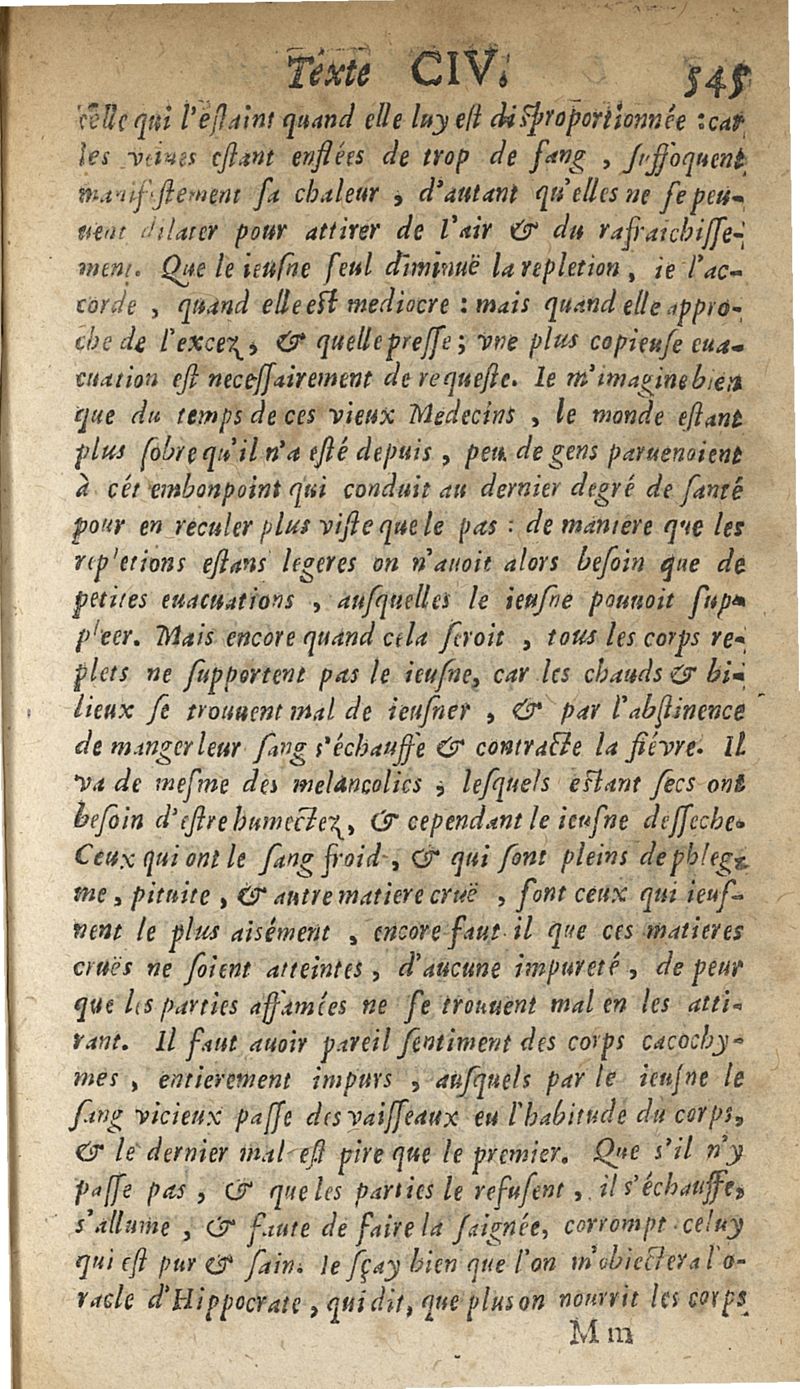 Téxte CIV. 545
celle qui l'estaint quand elle luy est disproportionnée : car
les veines estant enflées de trop de sang , suffoquent
manifestement sa chaleur , d'autant qu'elles ne se peu-
uent dilater pour attirer de l'air & du rafraichisse-
ment. Que le ieusne seul diminuë la repletion, ie l'ac-
corde , quand elle est mediocre : mais quand elle appro-
che de l'excez, & quelle presse ; vne plus copieuse eua-
cuation est necessairement de requeste. Ie m'imagine bien
que du temps de ces vieux Medecins , le monde estant
plus sobre qu'il n'a esté depuis , peu de gens paruenoient
à cét embonpoint qui conduit au dernier degré de santé
pour en reculer plus viste que le pas : de maniere que les
repletions estans legeres on n'auoit alors besoin que de
petites euacuations , ausquelles le ieusne pouuoit sup-
pleer. Mais encore quand cela seroit , tous les corps re-
plets ne supportent pas le ieusne, car les chauds & bi-
lieux se trouuent mal de ieusner , & par l'abstinence
de manger leur sang s'échauffe & contracte la fiévre. Il
va de mesme des melancolics , lesquels estant secs ont
besoin d'estre humectez, & cependant le ieusne desseche.
Ceux qui ont le sang froid , & qui sont pleins de phleg-
me , pituite , & autre matiere cruë , sont ceux qui ieus-
nent le plus aisément , encore faut il que ces matieres
cruës ne soient atteintes , d'aucune impureté , de peur
que les parties affamées ne se trouuent mal en les atti-
rant. Il faut auoir pareil sentiment des corps cacochy-
mes , entierement impurs , ausquels par le ieusne le
sang vicieux passe des vaisseaux eu l'habitude du corps,
& le dernier mal est pire que le premier. Que s'il n'y
passe pas , & que les parties le refusent , il s'échauffe,
s'allume , & faute de faire la saignée, corrompt celuy
qui est pur & sain. Ie sçay bien que l'on m'obiectera l'o-
racle d'Hippocrate , qui dit, que plus on nourrit les corps
M m